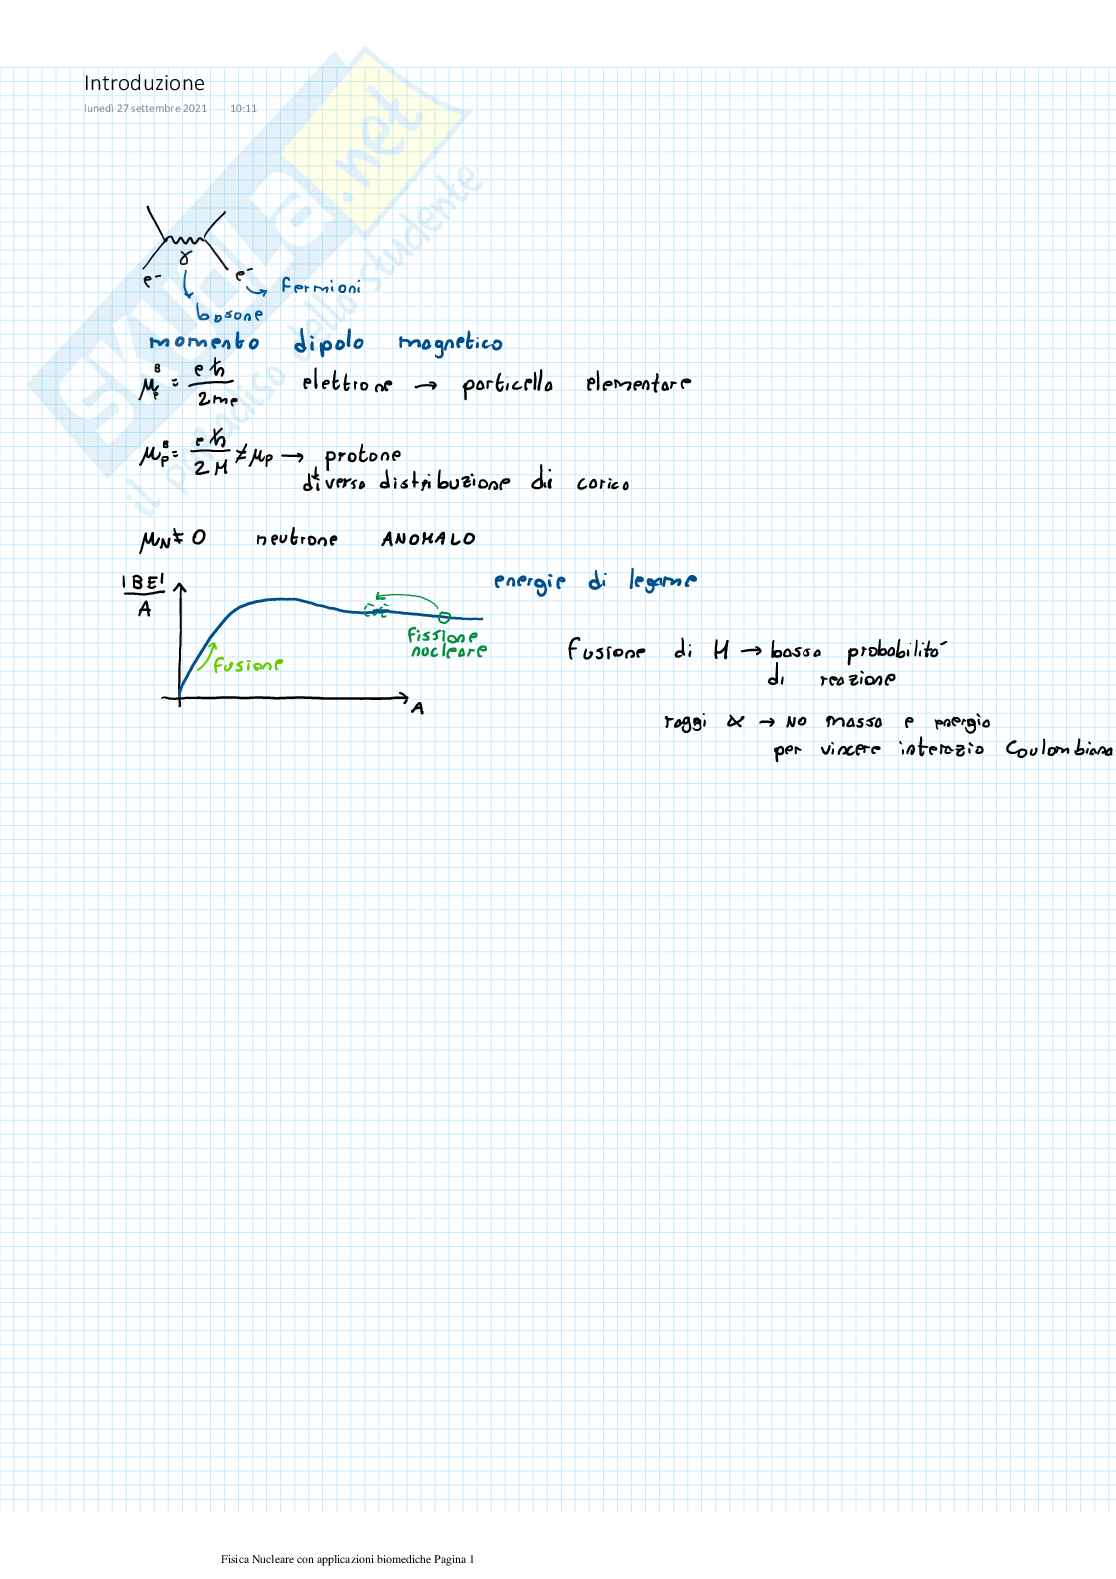 Introduzione
lunedì 27 settembre 2021 10:11
SKUOLA.net
il paradiso dello studente
γ
e⁻ e⁻ fermioni
bosone
momento dipolo magnetico
μₑᴮ = eħ/2me elettrone → particella elementare
μₚᴮ = eħ/2M ≠ μₚ → protone
diversa distribuzione di carica
μN ≠ 0 neutrone ANOMALO
|BE|/A energie di legame
fissione
nucleare
fusione
A
Fusione di H → bassa probabilità
di reazione
raggi α → NO massa e energia
per vincere interazio Coulombiana
Fisica Nucleare con applicazioni biomediche Pagina 1